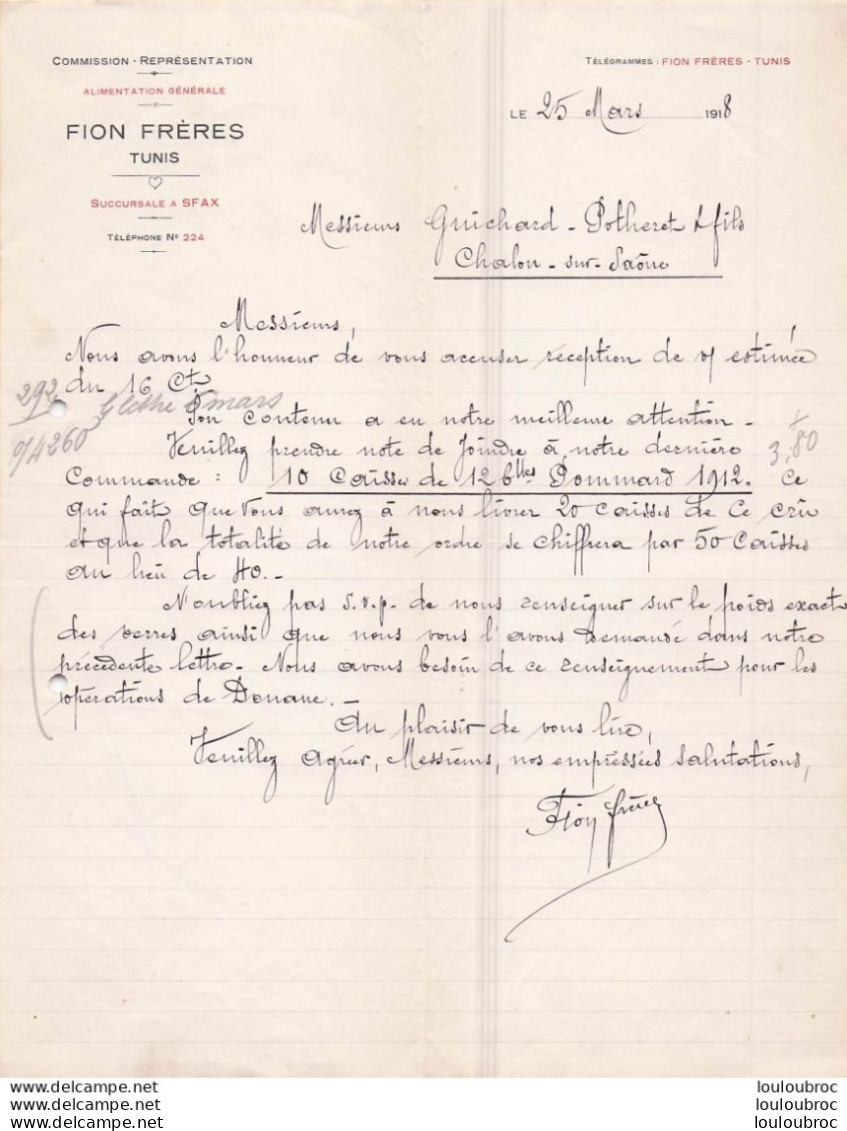 COMMISSION - REPRÉSENTATION
ALIMENTATION GÉNÉRALE
FION FRÈRES
TUNIS
SUCCURSALE A SFAX
TÉLÉPHONE Nº 224
TÉLÉGRAMMES : FION FRÈRES - TUNIS
LE 25 Mars 1918
Messieurs Guichard - Potheret & fils
Chalon - sur - Saône
Messieurs,
Nous avons l'honneur de vous accuser réception de v/ estimée
du 16 Ct.
292
mars
0/4260
Son contenu a eu notre meilleure attention -
Veuillez prendre note de Joindre à notre dernière
3,80
Commande : 10 Caisses de 12 blles Pommard 1912. Ce
qui fait que Vous aurez à nous livrer 20 caisses de Ce crû
et que la totalité de notre ordre se chiffrera par 50 Caisses
au lieu de 40. -
N'oubliez pas S.v.p. de nous renseigner sur le poids exact
des verres ainsi que nous vous l'avons Demandé dans notre
précédente lettre - Nous avons besoin de ce renseignement pour les
opérations de Douane. -
Au plaisir de vous lire,
Veuillez Agréer, Messieurs, nos empressées salutations,
Fion frères
louloubroc
louloubroc
louloubroc